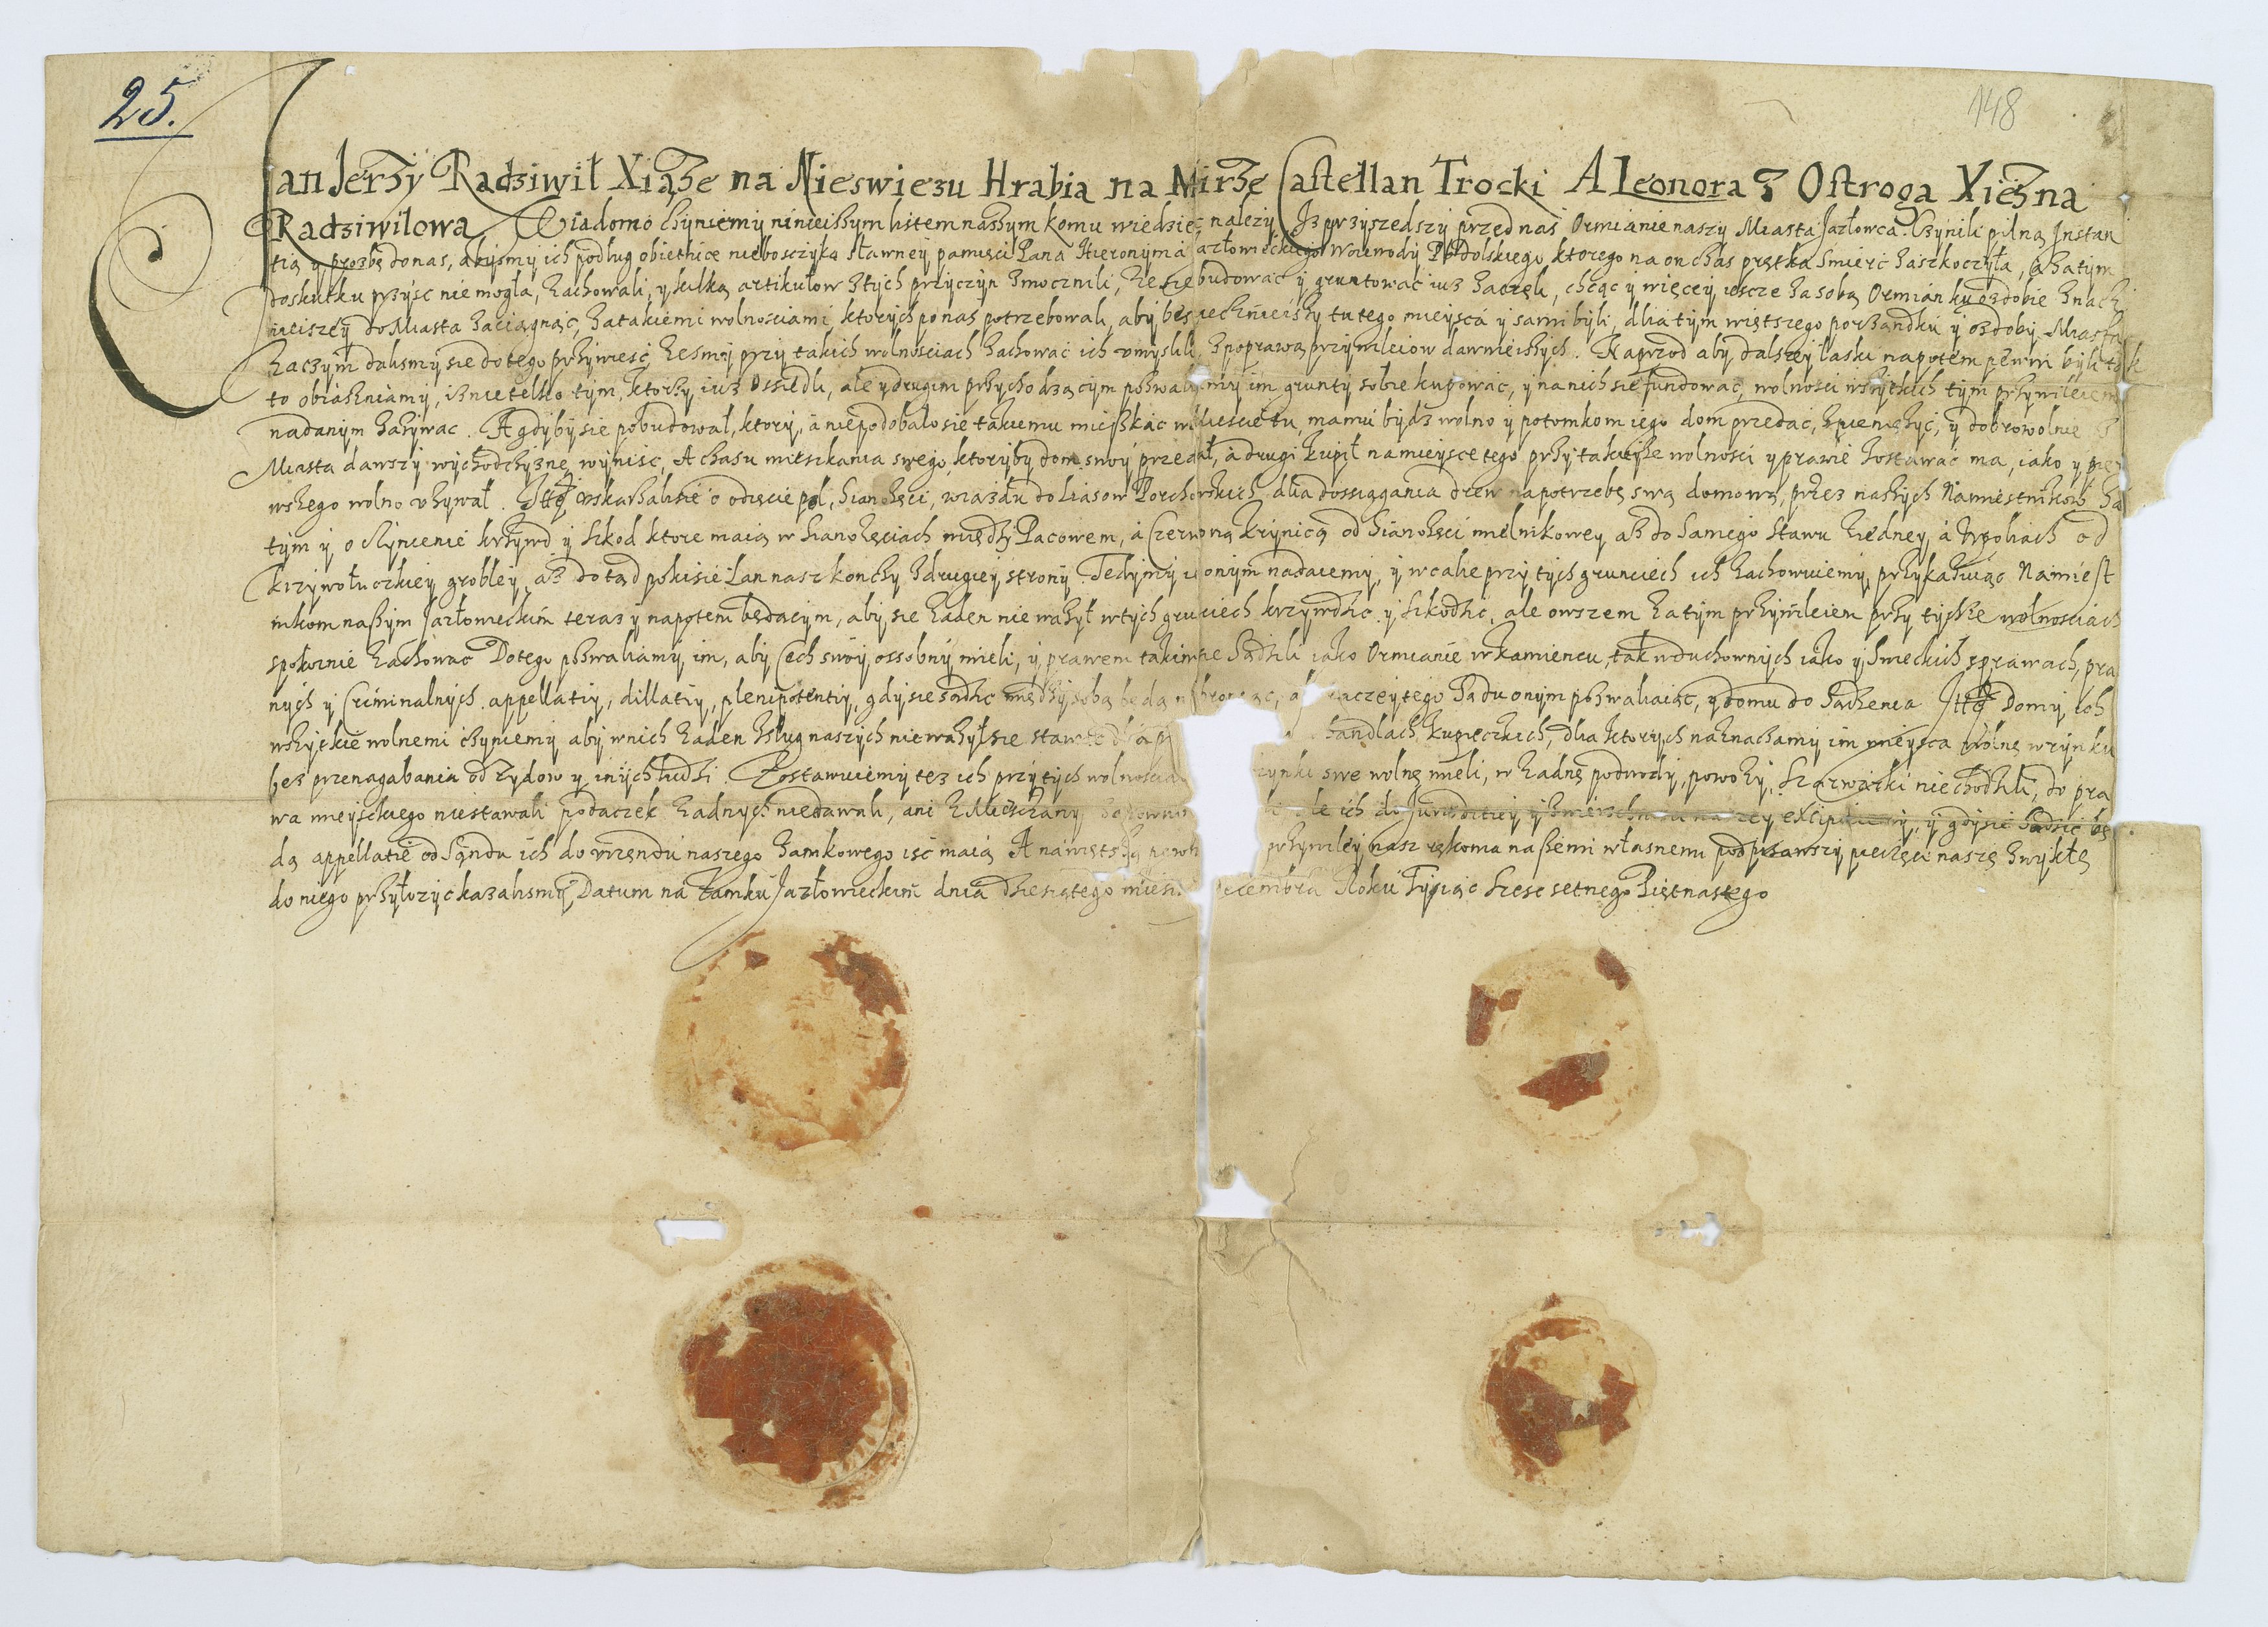 25.
148
Jan Jerzy Radziwił Xiąże na Nieswiezu Hrabia na Mirze Castellan Trocki ALeonora z Ostroga Xiężna
Radziwilowa Wiadomo czyniemy ninieiszym listem naszym komu wiedziec nalezy Iz przyszedszy przed nas Ormianie naszy Miasta Jazłowca. Uczynili pilną Instan
tią y prozbę do nas, abysmy ich podług obietnice nieboszczyka sławney pamięci Pana Hieronyma Jazłowieckiego Woiewody Podolskiego ktorego na on czas prętka smierc zaskoczyła, a zatym
do skutku przysc nie mogła, zachowali, y kilka artikułow z tych przyczyn zmocnili, ze się budowac y gruntowac iuz zaczęli, chcąc y więcey iescze za sobą Ormian ku ozdobie znacz
nieiszey do Miasta zaciągnąc, za takiemi wolnosciami ktorych po nas potrzebowali, aby bespieczneiszy tu tego mieysca y sami byli, dlia tym więtszego porządku y ozdoby Miasta
Zaczym dalismy sie do tego przywiesc zesmy przy takich wolnosciach zachowac ich umyslili z poprawą przywileiow dawnieiszych. Naprzod aby dalszey łaski na potem pewni byli tak
to obiasniamy, iz nie telko tym, ktorzy iuz ossiedli, ale y drugim przychodzącym pozwalamy im grunty sobie kupowac, y na nich się fundowac, wolnosci wszytkich tym przywileiem
nadanym zazywac. A gdyby sie pobudował, ktory, a nie podobało sie takiemu mieszkac w miescie tu, ma mu bydz wolno y potomkom iego dom przedac, spieniężyc, y dobrowolnie z
Miasta dawszy wychodczyznę wynisc, A czasu mieszkania swego, ktoryby dom swoy przedał, a drugi kupił na mieysce tego przy takieyze wolnosci y prawie zostawac ma, iako y pier
wszego wolno uzywał. Itẽ uskarzali sie o odięcie pol, sianozęci, wiazdu do liasow Porchowskich dlia dossiągania drew na potrzebę swą domową, przez naszych Namiestnikow za
tym y o czynienie krzywd y szkod ktore maią w sianozęciach między Pacowem, a Czerwoną krynicą od sianozęci mielnikowey az do samego stawu ziedney, a w poliach od
krzywołuczkiey grobley az dotąd pokisie Łan nasz konczy z drugiey strony. Tedy my i onym nadaiemy, y w całie przy tych grunciech ich zachowuiemy, przykazuiąc Namiest
nikom naszym Jazłowieckim teraz y napotem będącym, aby sie zaden nie wazył w tych grunciech krzywdzic y szkodzic, ale owszem za tym przywileiem przy tychze wolnosciach
spokoinie zachowac Do tego pozwaliamy im, aby Cech swoy ossobny mieli, y prawem takimze sądzili iako Ormianie w kamiencu, tak w duchownych iako y swieckich sprawach, pra
nych y Criminalnych. appellatiy, dillatiy, plenipotentiy, gdy sie sądzic między sobą będą nie broniąc, ale raczey tego sądu onym pozwaliaiąc, y domu do sądzenia Itẽ Domy ich
wszyckie wolnemi czyniemy aby w nich zaden z sług naszych nie wazył sie stawac handlach kupieczkich, dlia ktorych naznaczamy im mieysca wolne w rynku
bez przenagabania od zydow y inych ludzi. Zostawuiemy tez ich przy tych wolnoscia szynki swe wolne mieli, w zadne podwody, powozy, szarwarki nie chodzili, do pra
wa mieyskiego nie stawali podaczek zadnych nie dawali, ani z Miesczany ale ich do Jurisditiey y zwierzchnosci naszey excipuiemy, y gdy sie sądzic bę
dą appellatie od sądu ich do urzendu naszego zamkowego isc maią A na więtszą przywiley nasz rękoma naszemi własnemi podpisawszy pieczęci nasze zwykłe
do niego przyłozyc kazalismy. Datum na zamku Jazłowieckim dnia dziesiątego miesi Decembra Roku Tysiąc szesc setnego Piętnastego